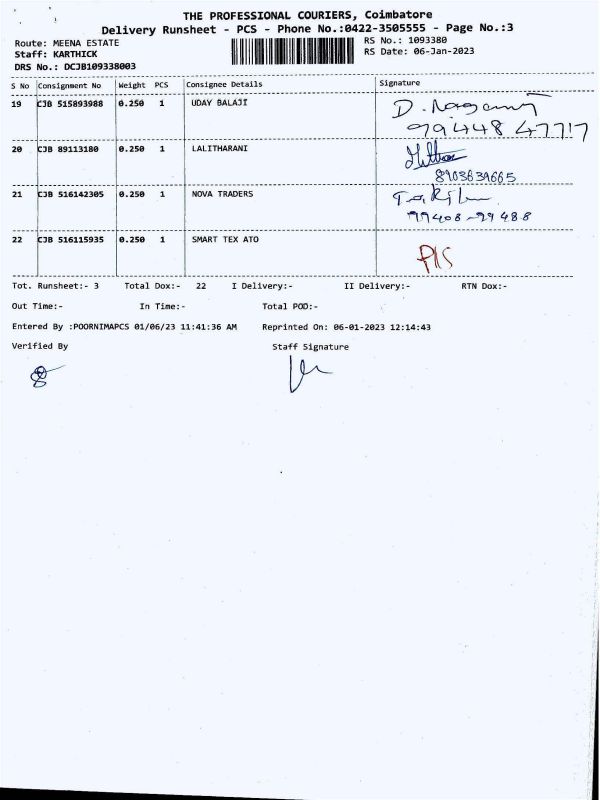 THE PROFESSIONAL COURIERS, Coimbatore
Delivery Runsheet - PCS - Phone No.:0422-3505555 - Page No.:3
Route: MEENA ESTATE RS No.: 1093380
Staff: KARTHICK RS Date: 06-Jan-2023
DRS No.: DCJB109338003
S No Consignment No Weight PCS Consignee Details Signature
19 CJB 515893988 0.250 1 UDAY BALAJI D.
99448 47717
20 CJB 89113180 0.250 1 LALITHARANI
8903639665
21 CJB 516142305 0.250 1 NOVA TRADERS
99408-99488
22 CJB 516115935 0.250 1 SMART TEX ATO
Tot. Runsheet:- 3 Total Dox:- 22 I Delivery:- II Delivery:- RTN Dox:-
Out Time:- In Time:- Total POD:-
Entered By :POORNIMAPCS 01/06/23 11:41:36 AM Reprinted On: 06-01-2023 12:14:43
Verified By Staff Signature